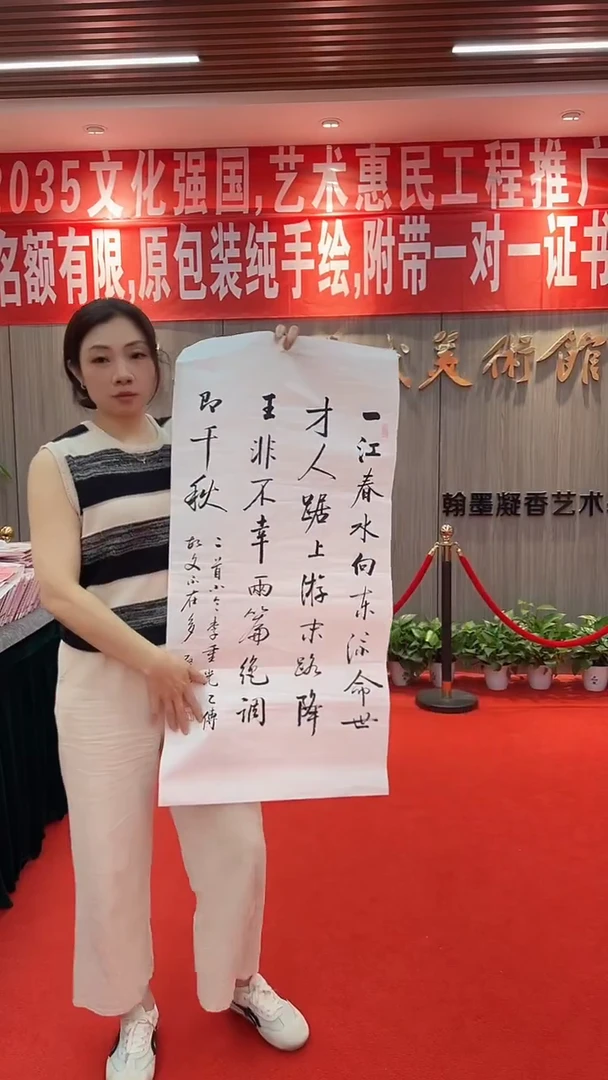 2035文化强国,艺术惠民工程推广
名额有限,原包装纯手绘,附带一对一证书
美術館
翰墨凝香艺术
一江春水向东流命世
才人踞上游末路降
王非不幸兩篇绝调
即千秋
二首小令李重光已传
故文不在多